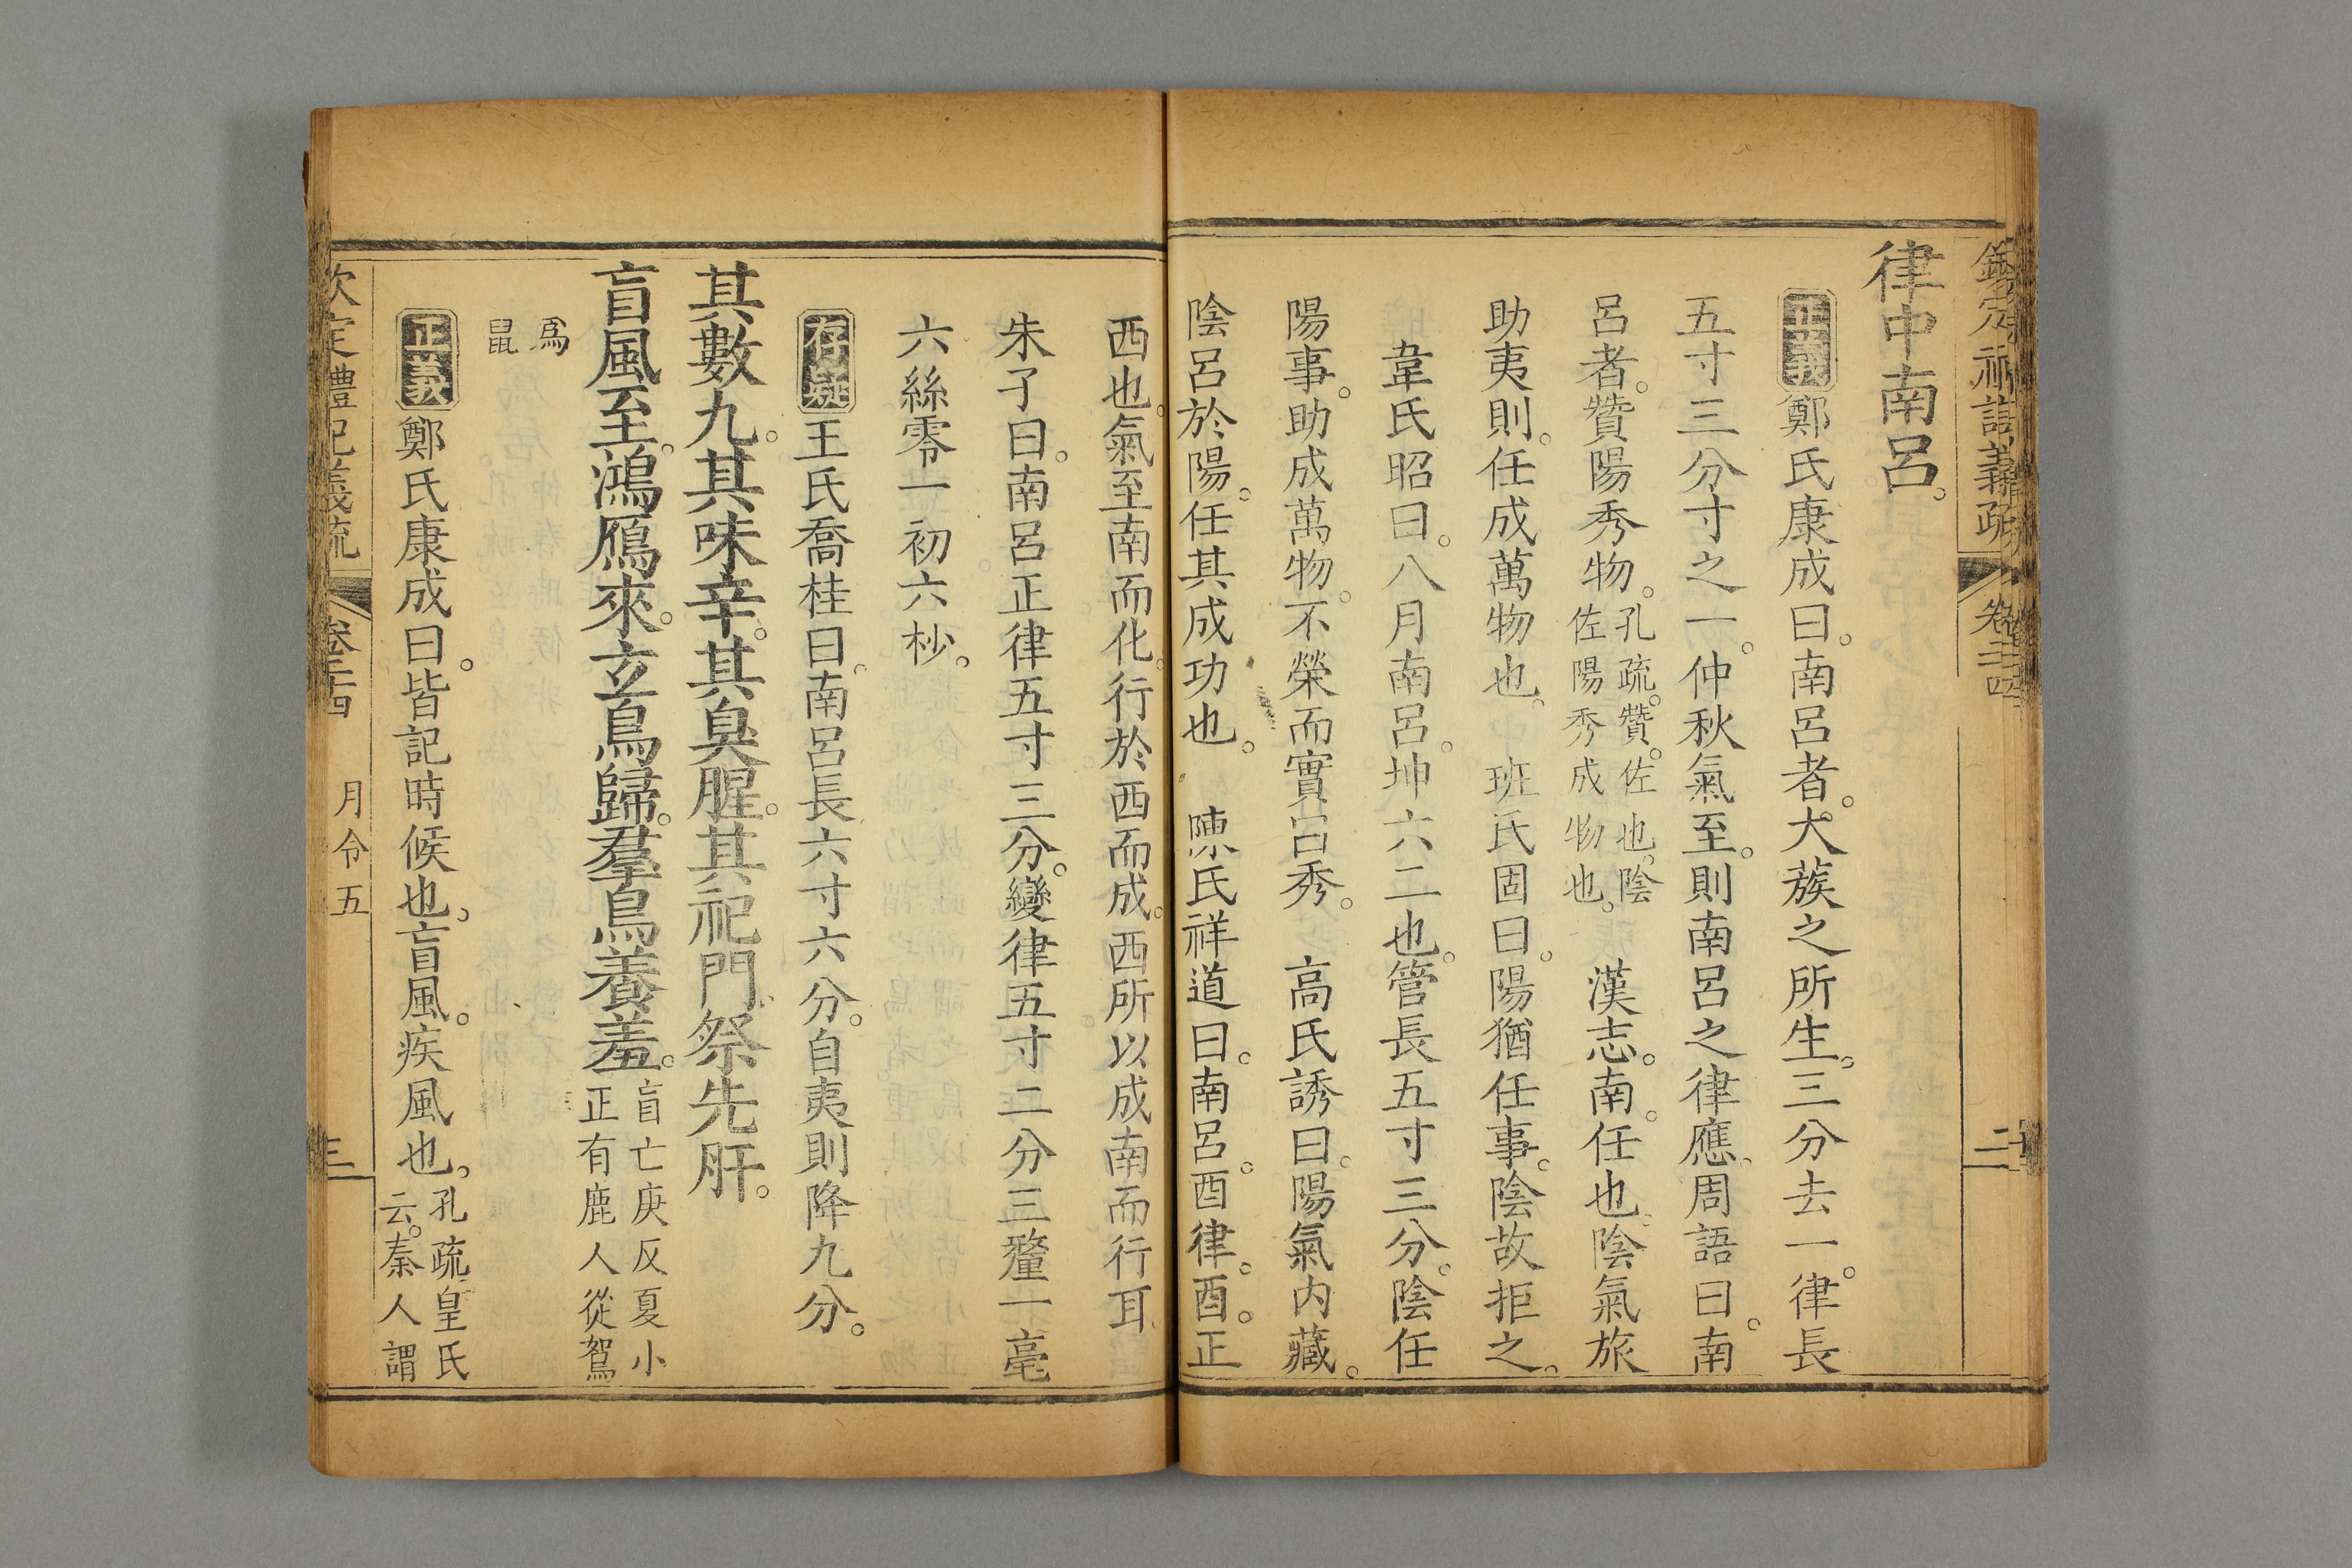 欽定禮記義疏 卷二十四 二
律中南呂。
正義鄭氏康成曰。南呂者。大蔟之所生。三分去一。律長
五寸三分寸之一。仲秋氣至。則南呂之律應。周語曰。南
呂者。贊陽秀物。孔疏。贊。佐也。陰佐陽秀成物也。 漢志。南。任也。陰氣旅
助夷則。任成萬物也。 班氏固曰。陽猶任事。陰故拒之。
韋氏昭曰。八月南呂。坤六二也。管長五寸三分。陰任
陽事。助成萬物。不榮而實曰秀。 高氏誘曰。陽氣内藏。
陰呂於陽。任其成功也。 陳氏祥道曰。南呂。酉律。酉。正
西也。氣至南而化。行於西而成。西所以成南而行耳
朱子曰。南呂正律五寸三分。變律五寸二分三釐一毫
六絲零一初六杪。
存疑王氏喬桂曰。南呂長六寸六分。自夷則降九分。
其數九。其味辛。其臭腥。其祀門。祭先肝。
盲風至。鴻鴈來。玄鳥歸。羣鳥養羞。盲亡庚反夏小正有鹿人從鴽
爲鼠
正義鄭氏康成曰。皆記時候也。盲風。疾風也。孔疏皇氏云。秦人謂
欽定禮記義疏 卷二十四 月令五 三